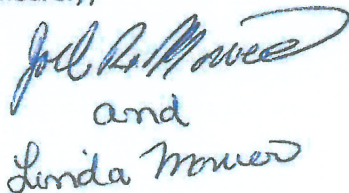 Joel R. Mower
and
Linda Mower